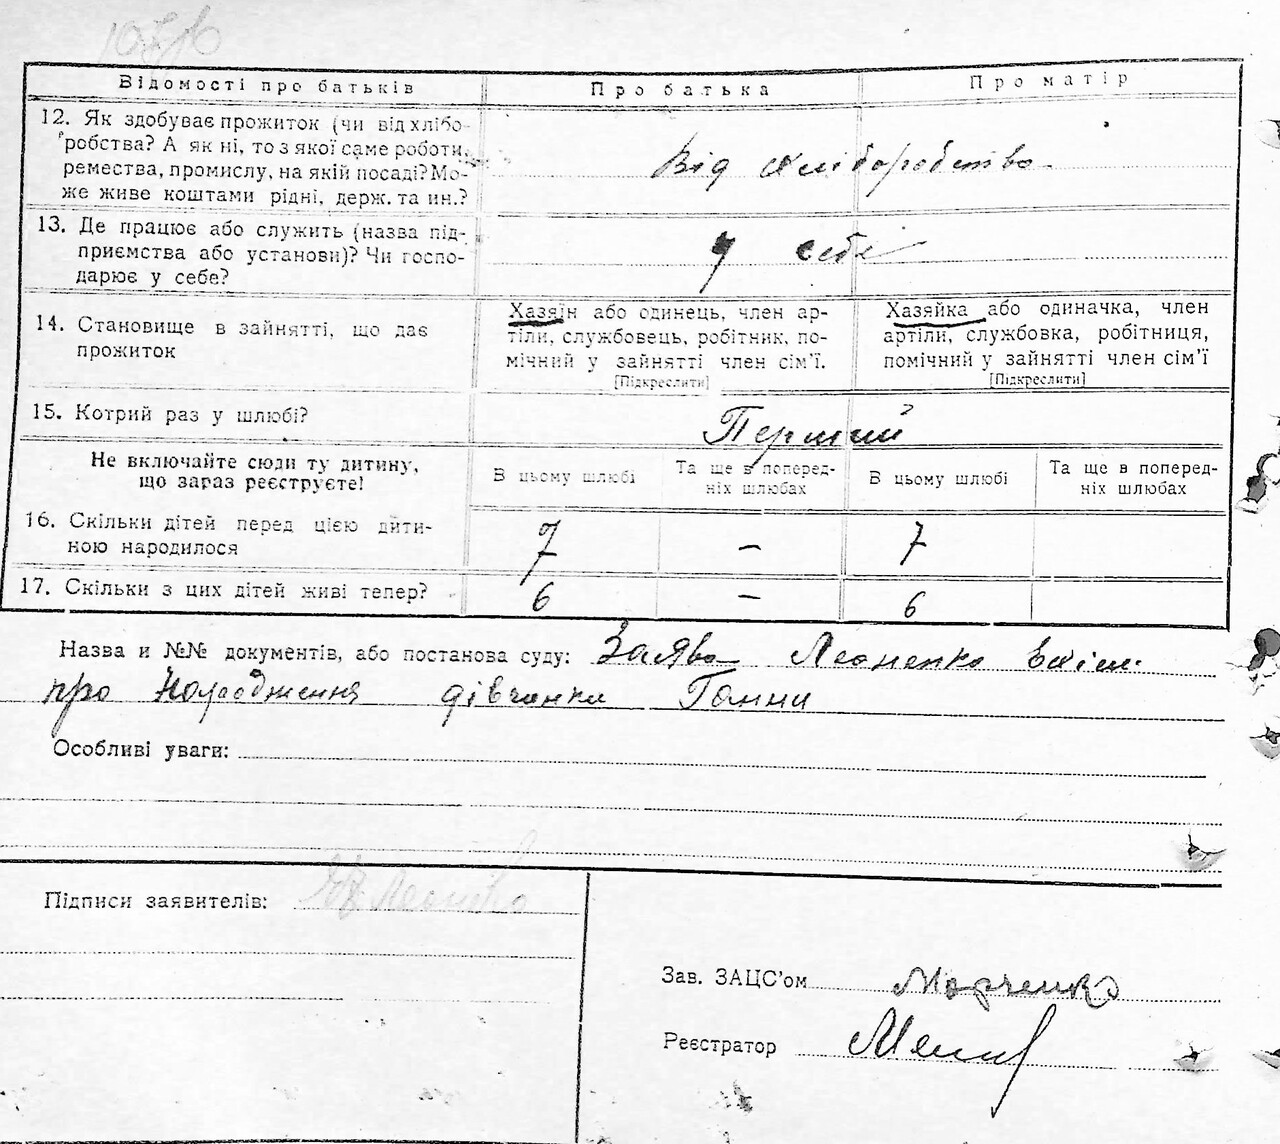 Відомості про батьків Про батька Про матір
12. Як здобуває прожиток (чи від хлібо-
робства? А як ні, то з якої саме роботи,
ремества, промислу, на якій посаді? Мо-
же живе коштами рідні, держ. та ин.?
Від хліборобства
13. Де працює або служить (назва під-
приємства або установи)? Чи госпо-
дарює у себе?
у себе
14. Становище в зайнятті, що дає
прожиток
Хазяїн або одинець, член ар-
тіли, службовець, робітник, по-
мічний у зайнятті член сім'ї.
[Підкреслити]
Хазяйка або одиначка, член
артіли, службовка, робітниця,
помічний у зайнятті член сім'ї
[Підкреслити]
15. Котрий раз у шлюбі?
Перший
Не включайте сюди ту дитину,
що зараз реєструєте!
В цьому шлюбі
Та ще в поперед-
ніх шлюбах
В цьому шлюбі
Та ще в поперед-
ніх шлюбах
16. Скільки дітей перед цією дити-
ною народилося
7 – 7
17. Скільки з цих дітей живі тепер? 6 – 6
Назва и №№ документів, або постанова суду: Заява Леоненко
про народження дівчинки Ганни
Особливі уваги:
Підписи заявителів:
Зав. ЗАЦС'ом Марченко
Реєстратор